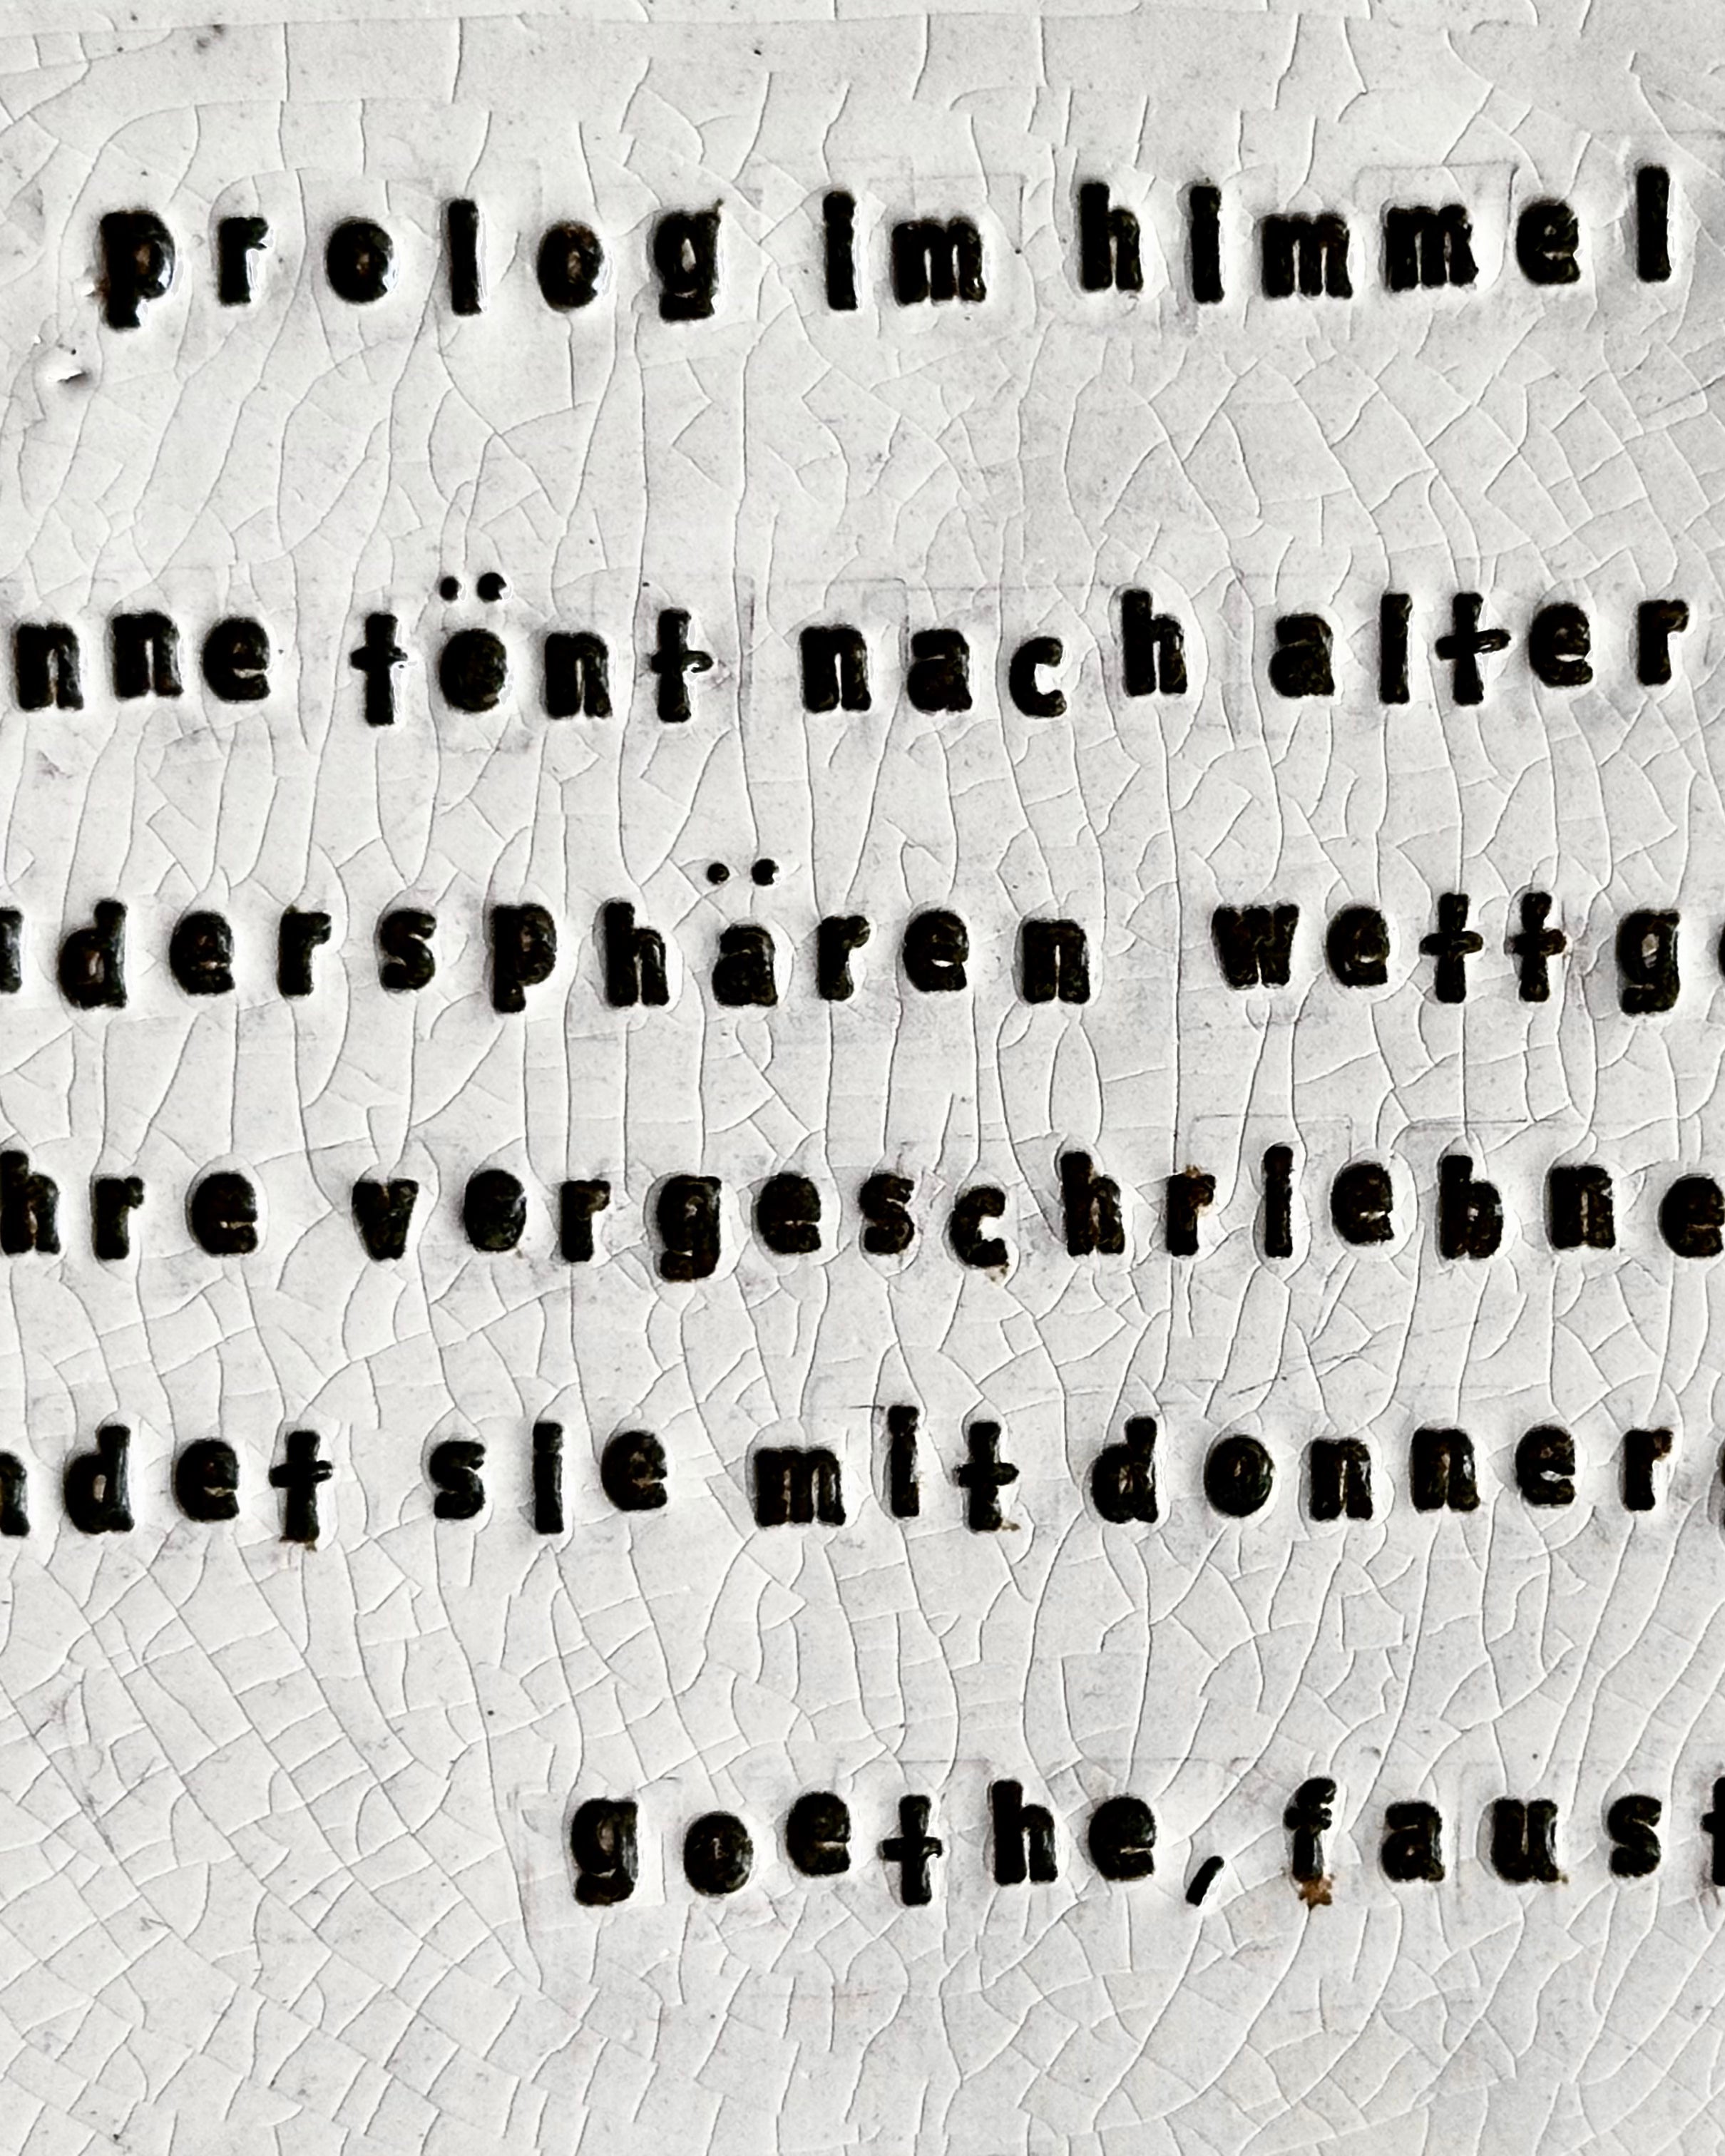 prolog im himmel
nne tönt nach alter
dersphären wettg
hre vorgeschriebne
ndet sie mit donner
goethe, faust